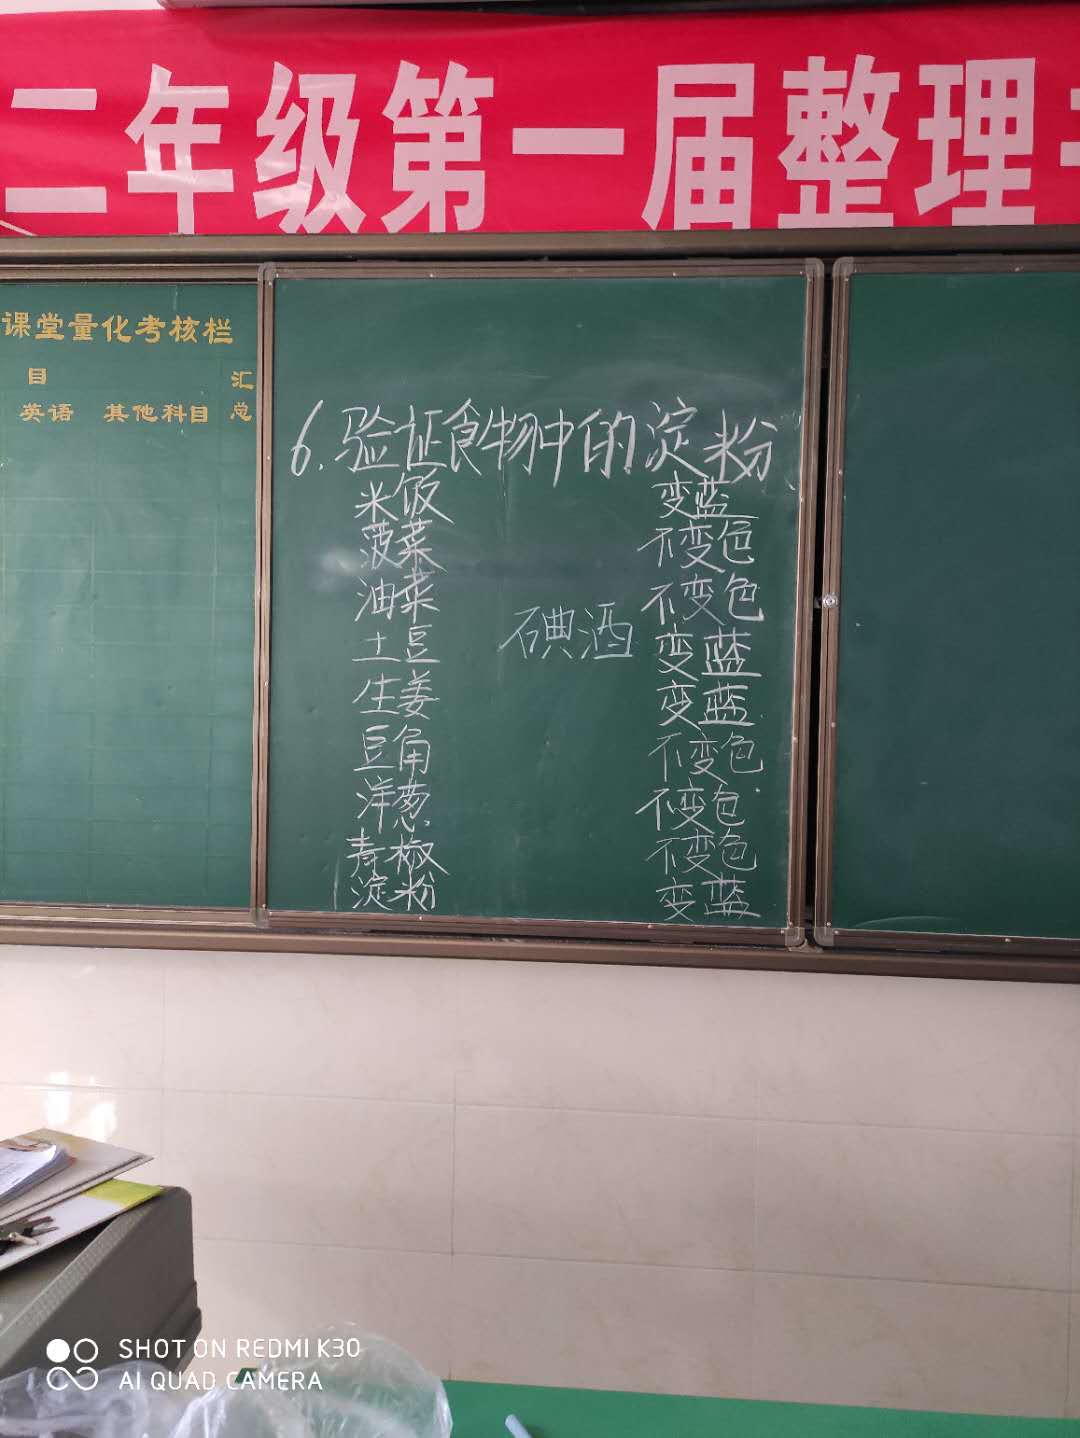 二年级第一届整理
课堂量化考核栏
目 汇
英语 其他科目 总
6.验证食物中的淀粉
米饭 变蓝
菠菜 不变色
油菜 不变色
碘酒
土豆 变蓝
生姜 变蓝
豆角 不变色
洋葱 不变色
青椒 不变色
淀粉 变蓝
SHOT ON REDMI K30
AI QUAD CAMERA